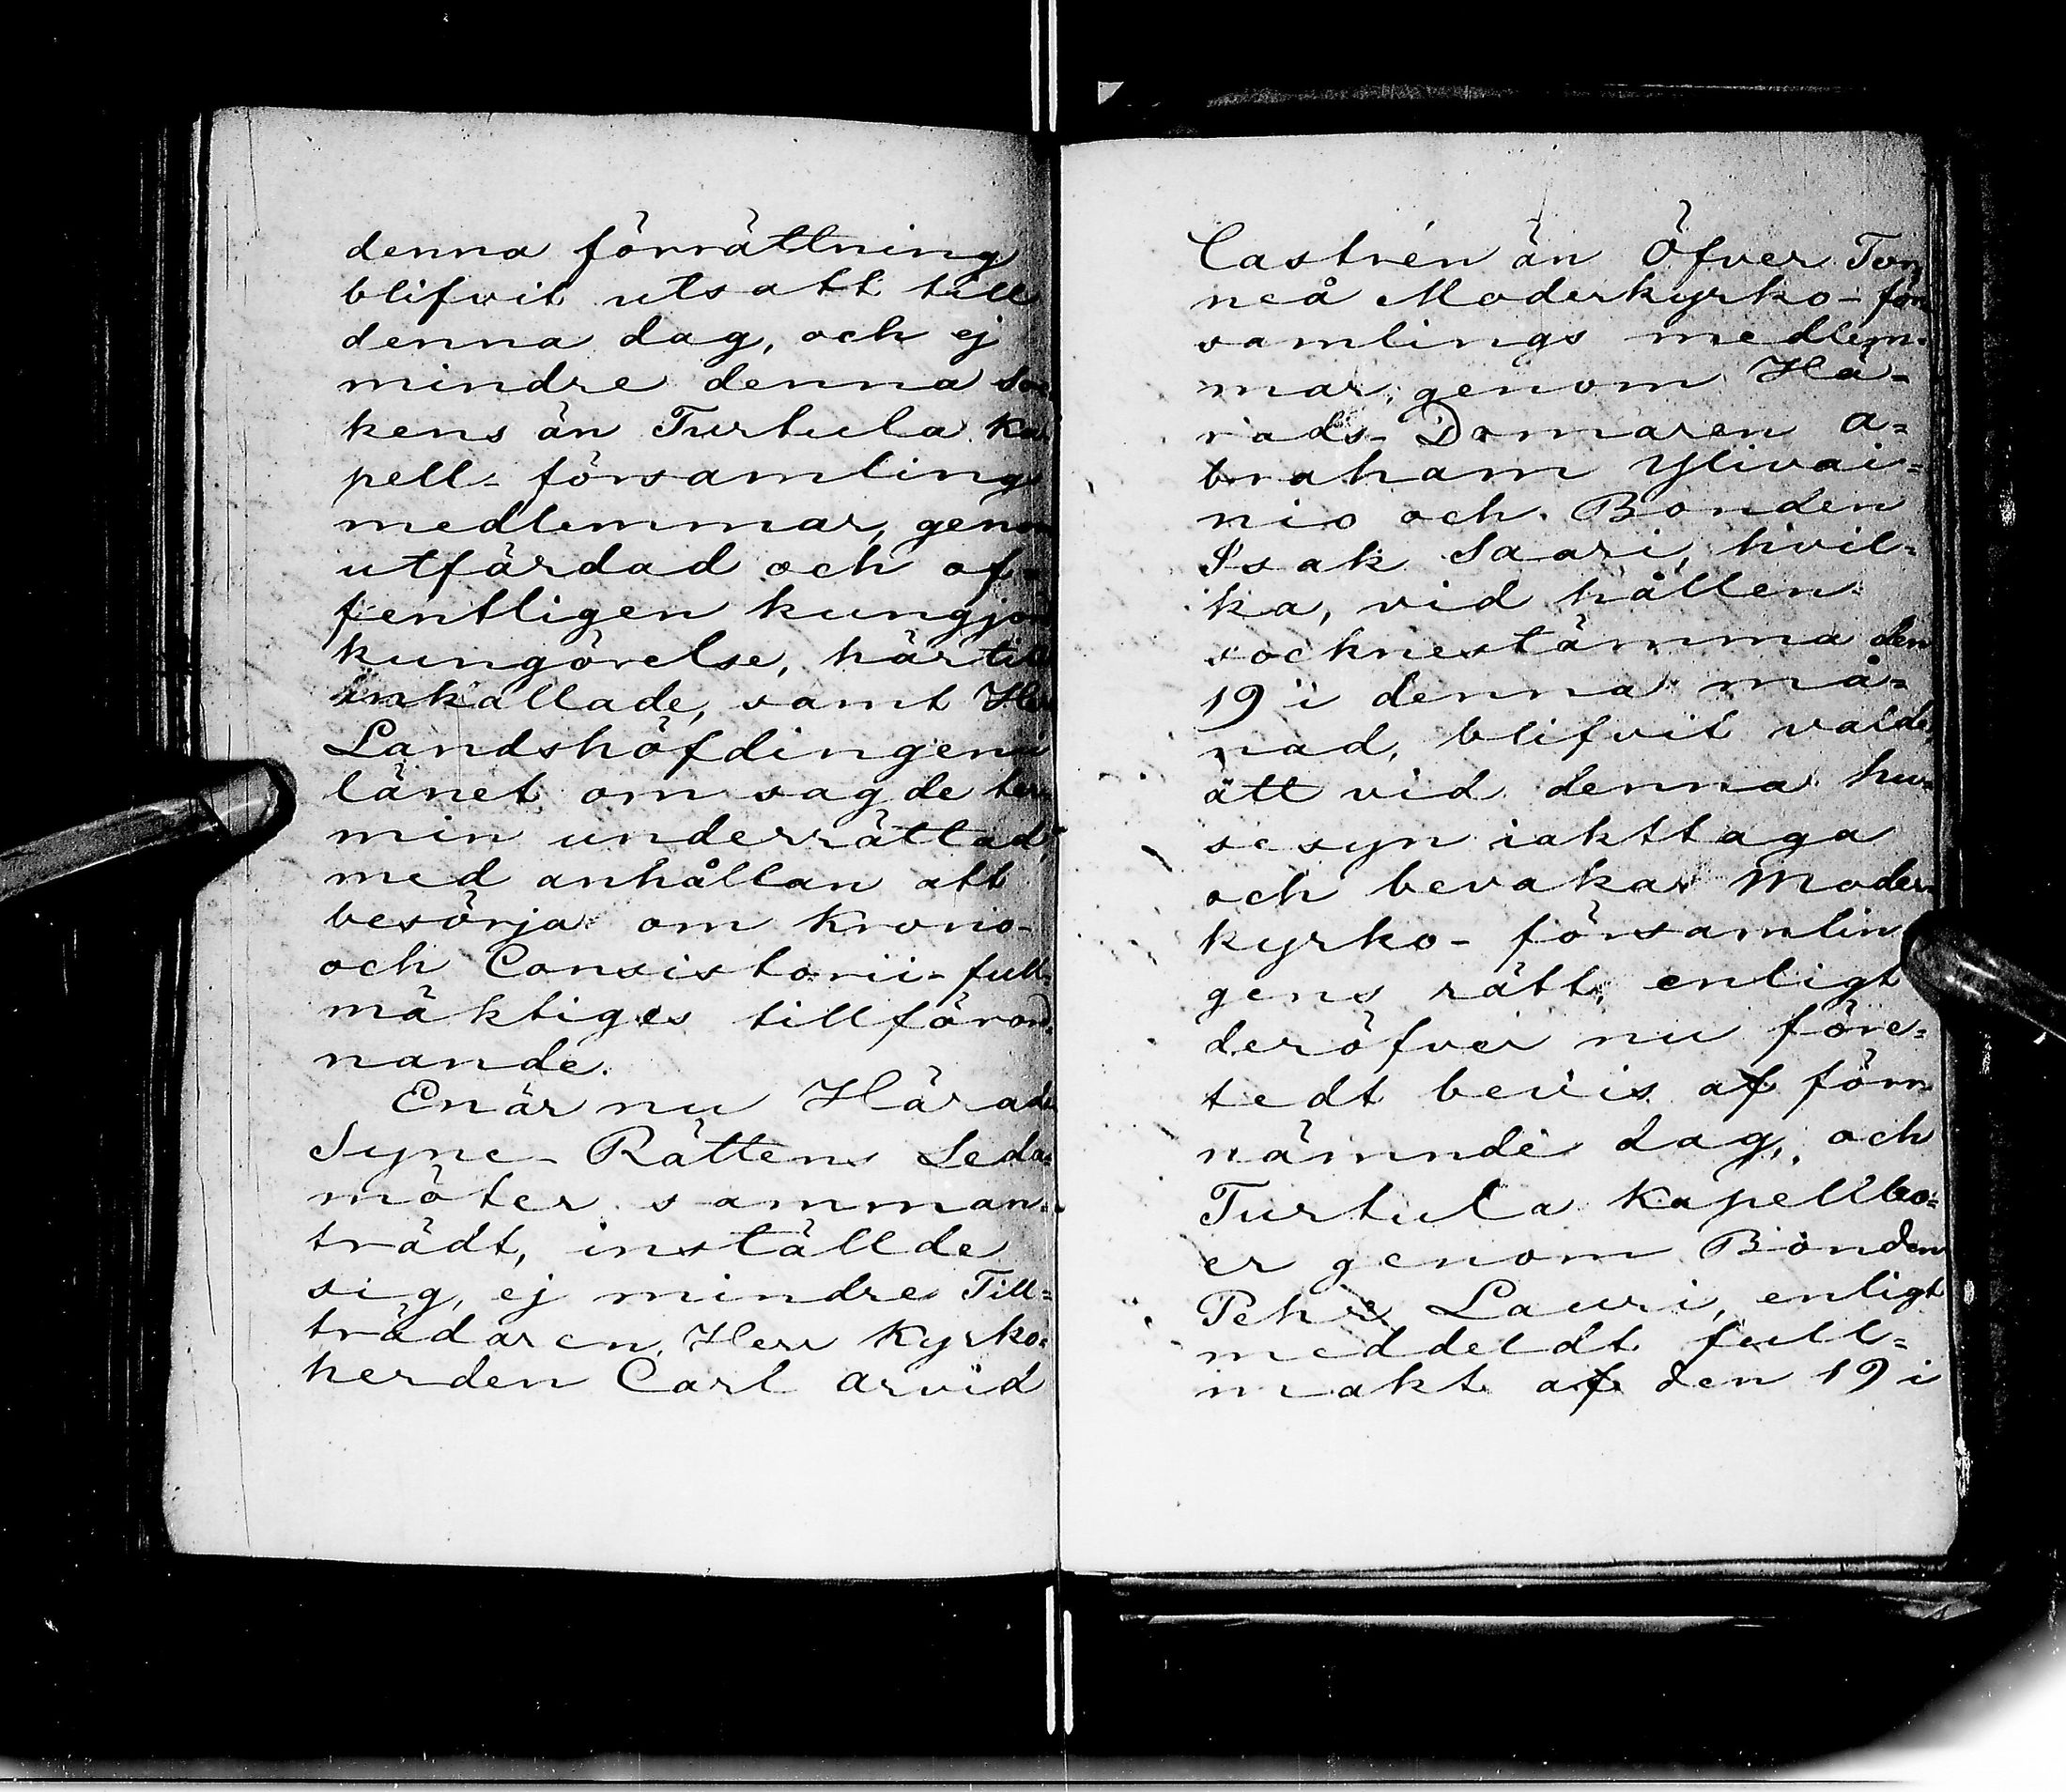 denna förrättning
blifvit utsatt till
denna dag, och ej
mindre denna soc
kens än Turtula Ka
pell-församlings
medlemmar, genom
utfärdad och of-
fentligen kungjord
kungörelse, härtill
inkallade, samt Herr
Landshöfdingen i
länet om sagde ter-
min underrättad,
med anhållan att
besörja om Krono-
och Consistorii-full-
mäktiges tillförord-
nande.
Enär nu Härads
Syne-Rättens Leda-
möter samman-
trädt, inställde
sig, ej mindre Till-
trädaren, Herr Kyrko-
herden Carl Arvid
Castrén än Öfver Tor
neå Moderkyrko-för
samlings medlem-
mar, genom Hä-
rads-Domaren A-
braham Ylivai-
nio och Bonden
Isak Saari, hvil-
ka, vid hållen
sochnestämma den
19 i denna må-
nad, blifvit valde,
att vid denna hu-
sesyn iakttaga
och bevaka Moder-
kyrko-församlin
gens rätt, enligt
deröfver nu före-
tedt bevis af förr
nämnde dag, och
Turtula Kapellbo-
er genom Bonden
Pehr Lauri, enligt
meddeldt full-
makt af den 19 i